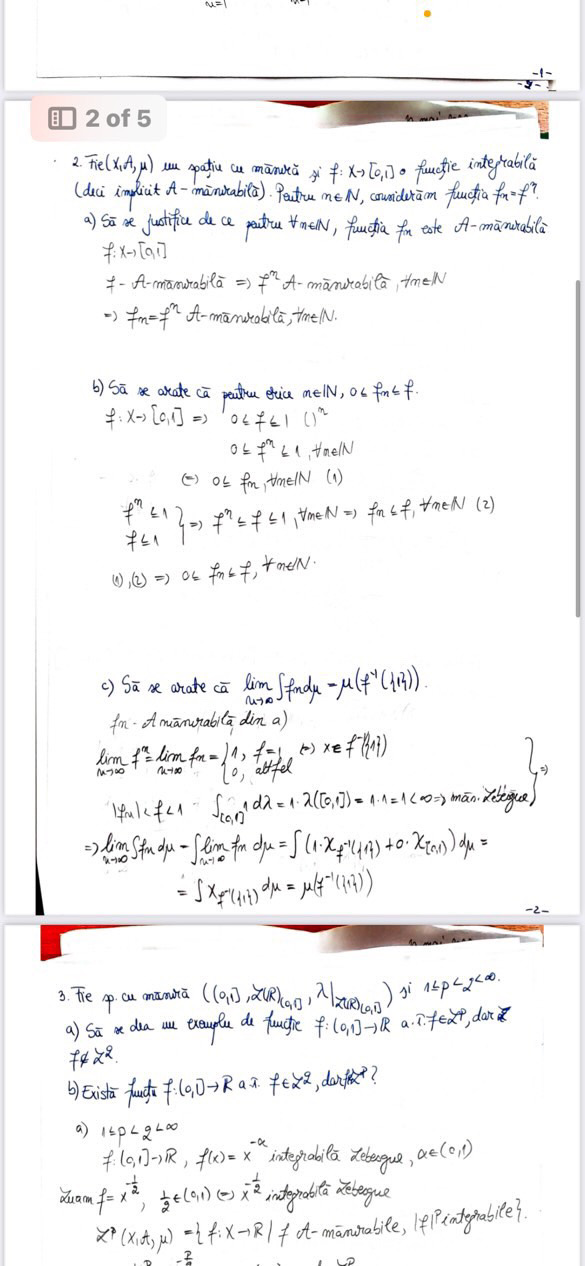 n=1
-1-
2 of 5
2. Fie (X,A,μ) un spațiu cu măsură și f: X→[0,1] o funcție integrabilă
(deci implicit A-măsurabilă). Pentru n∈ℕ, considerăm funcția fn=fⁿ.
a) Să se justifice de ce pentru ∀n∈ℕ, funcția fn este A-măsurabilă
f: X→[0,1]
f - A-măsurabilă => fⁿ A-măsurabilă, ∀n∈ℕ
=> fn=fⁿ A-măsurabilă, ∀n∈ℕ.
b) Să se arate că pentru orice n∈ℕ, 0≤fn≤f.
f: X→[0,1] => 0≤f≤1 ()ⁿ
0≤fⁿ≤1, ∀n∈ℕ
(=) 0≤fn, ∀n∈ℕ (1)
fⁿ≤1
f≤1 } => fⁿ≤f≤1, ∀n∈ℕ => fn≤f, ∀n∈ℕ (2)
(1),(2) => 0≤fn≤f, ∀n∈ℕ.
c) Să se arate că lim n→∞ ∫fndμ = μ(f⁻¹({1})).
fn - A măsurabilă din a)
lim n→∞ fⁿ = lim n→∞ fn = { 1, f=1 (=) x∈f⁻¹({1})
0, altfel
|fn|<f<1 - ∫[0,1] 1 dλ = 1·λ([0,1]) = 1·1=1<∞ => măs. Lebesgue } =>
=> lim n→∞ ∫fn dμ - ∫lim n→∞ fn dμ = ∫(1·χ f⁻¹({1}) + 0·χ[0,1)) dμ =
= ∫χ f⁻¹({1}) dμ = μ(f⁻¹({1}))
-2-
3. Fie sp. cu măsură ((0,1], ℒ(ℝ)|(0,1], λ|ℒ(ℝ)(0,1]) și 1≤p<2<∞.
a) Să se dea un exemplu de funcție f: (0,1]→ℝ a.î. f∈ℒᵖ, dar
f∉ℒ².
b) Există funcții f: (0,1]→ℝ a.î. f∈ℒ², dar f∉ℒᵖ?
a) 1≤p<2<∞
f: (0,1]→ℝ, f(x) = x^-α integrabilă Lebesgue, α∈(0,1)
Luăm f = x^-1/2, 1/2∈(0,1) (=) x^-1/2 integrabilă Lebesgue
ℒᵖ(X,A,μ) = {f: X→ℝ / f A-măsurabile, |f|ᵖ integrabile}.